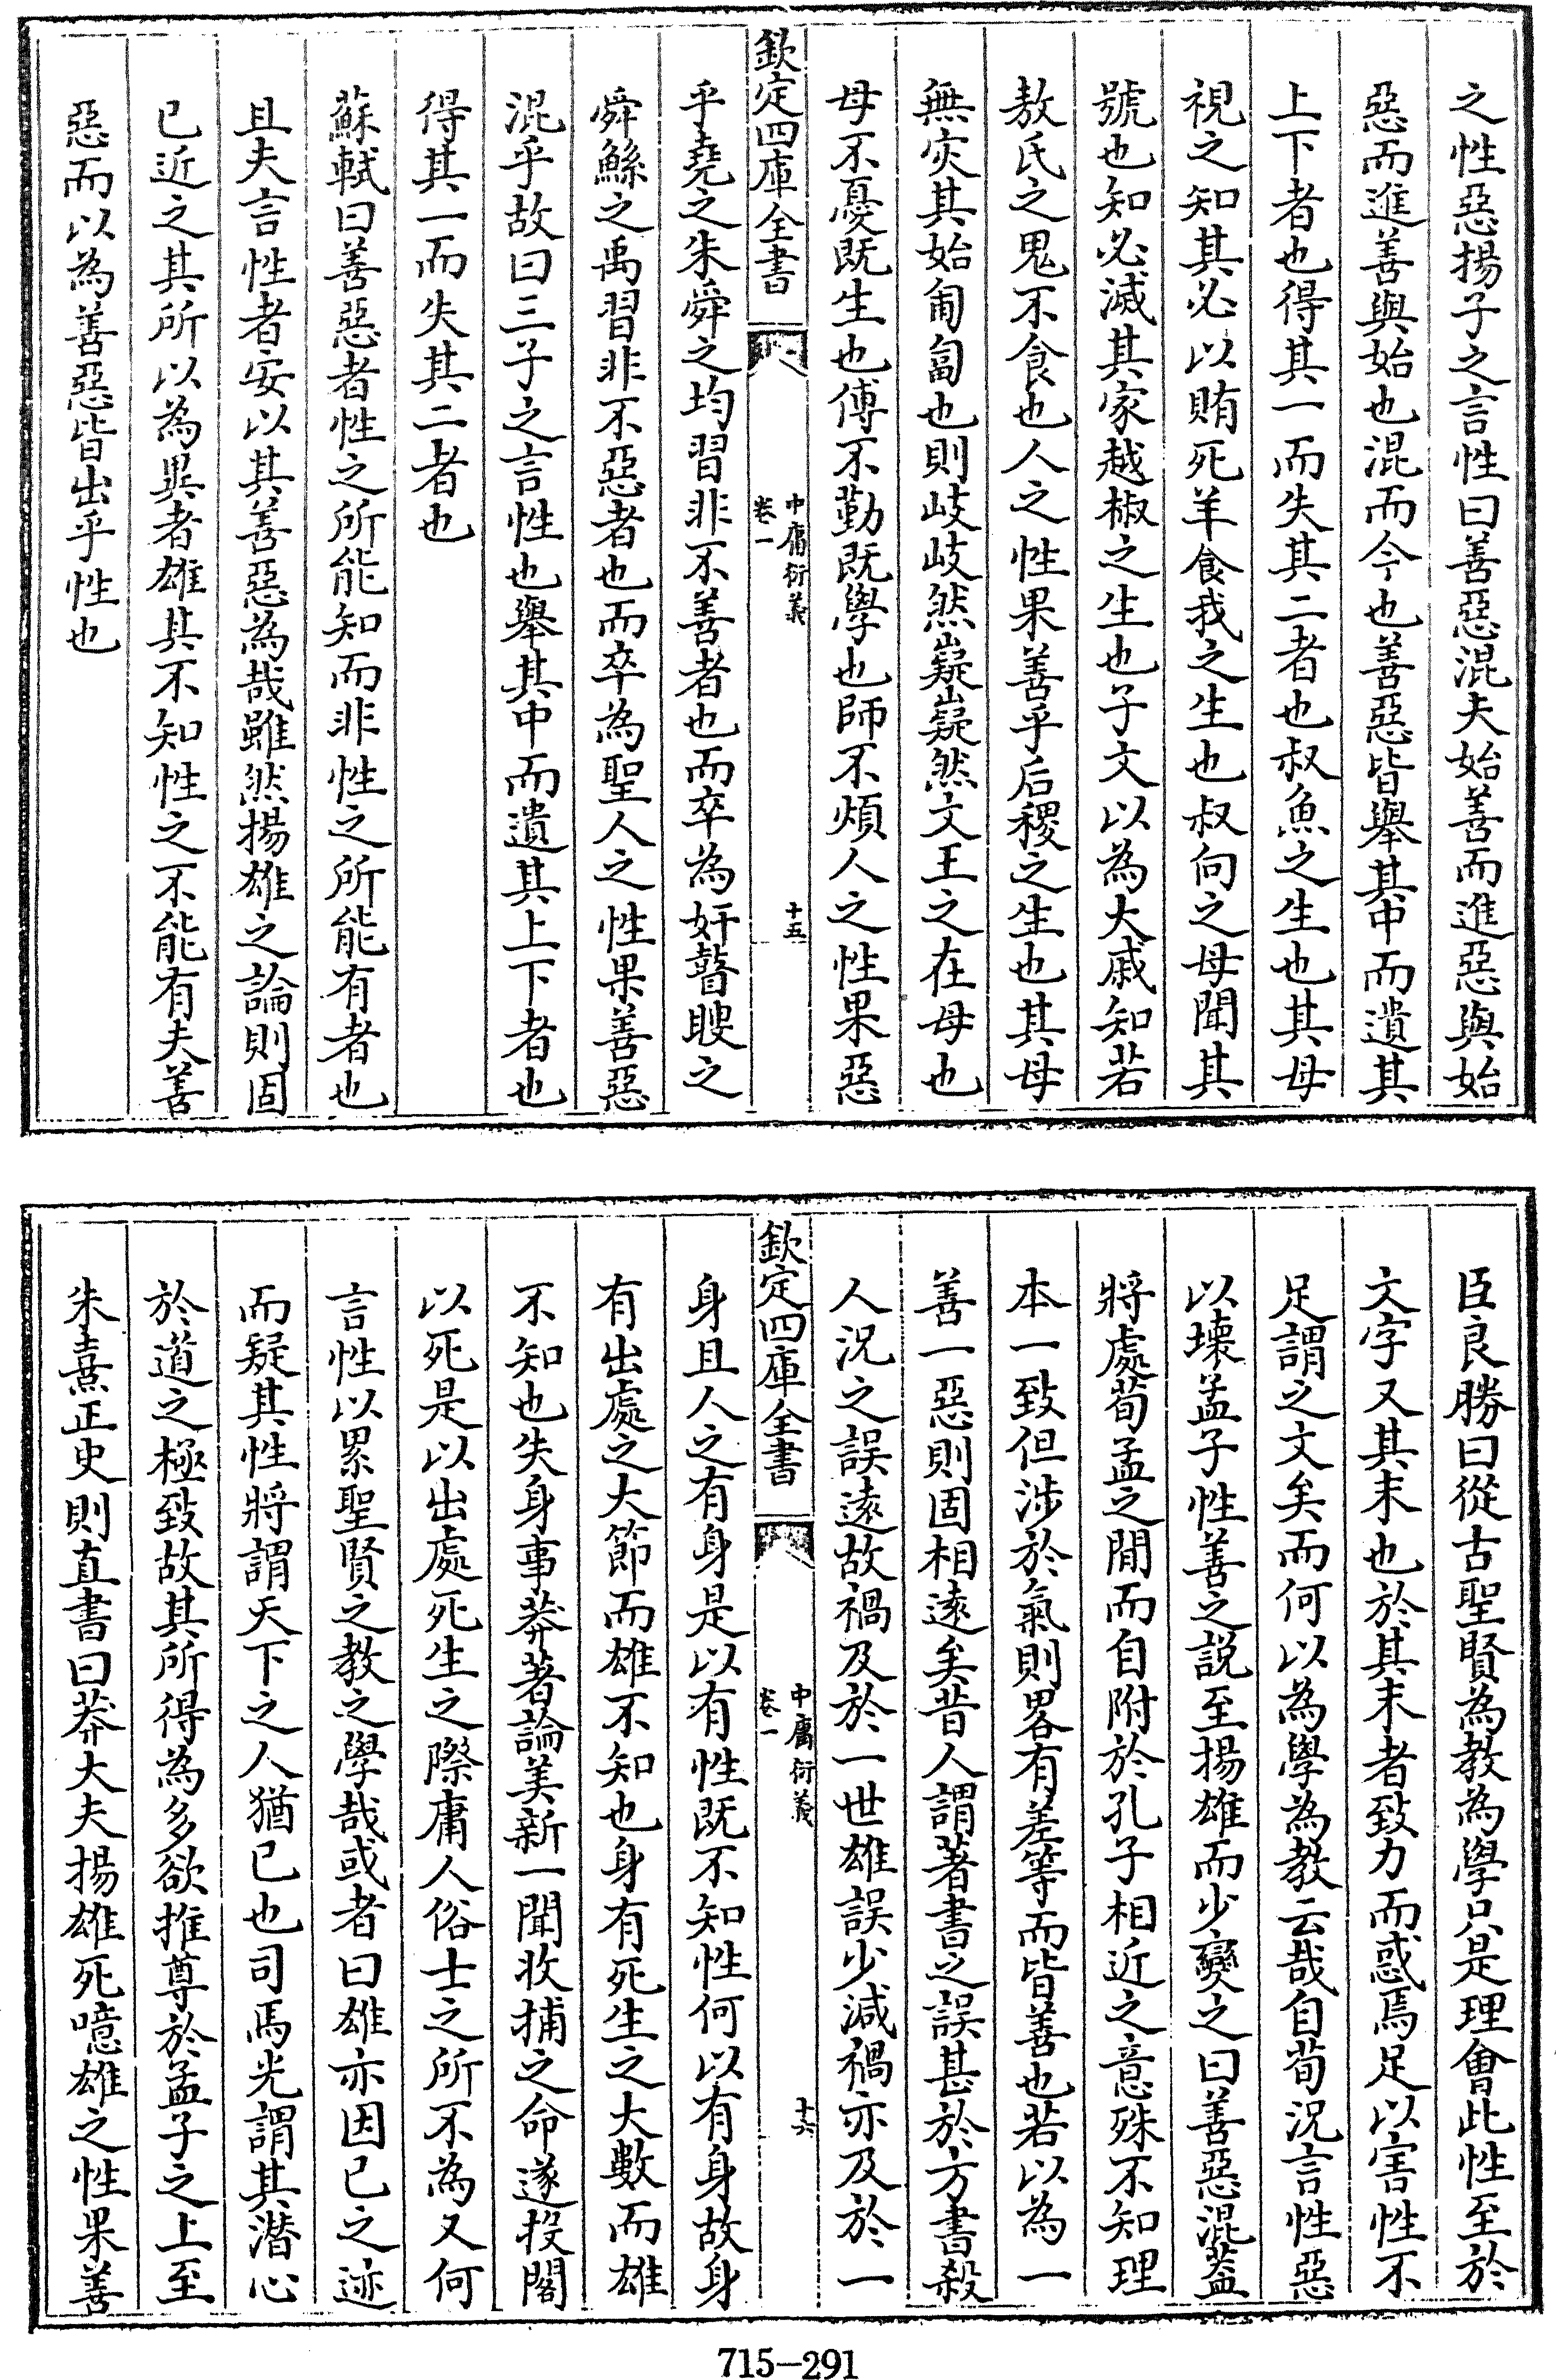 之性惡揚子之言性曰善惡混夫始善而進惡與始
惡而進善與始也混而今也善惡皆舉其中而遺其
上下者也得其一而失其二者也叔魚之生也其母
視之知其必以賄死羊食我之生也叔向之母聞其
號也知必滅其家越椒之生也子文以為大戚知若
敖氏之鬼不食也人之性果善乎后稷之生也其母
無灾其始匍匐也則岐岐然嶷嶷然文王之在母也
母不憂既生也傅不勤既學也師不煩人之性果惡
欽定四庫全書
中庸衍義
卷一
十五
乎堯之朱舜之均習非不善者也而卒為奸瞽瞍之
舜鯀之禹習非不惡者也而卒為聖人之性果善惡
混乎故曰三子之言性也舉其中而遺其上下者也
得其一而失其二者也
蘇軾曰善惡者性之所能知而非性之所能有者也
且夫言性者安以其善惡為哉雖然揚雄之論則固
已近之其所以為異者雄其不知性之不能有夫善
惡而以為善惡皆出乎性也
臣良勝曰從古聖賢為教為學只是理會此性至於
文字又其末也於其末者致力而惑焉足以害性不
足謂之文矣而何以為學為教云哉自荀況言性惡
以壊孟子性善之説至揚雄而少變之曰善惡混蓋
將處荀孟之間而自附於孔子相近之意殊不知理
本一致但涉於氣則畧有差等而皆善也若以為一
善一惡則固相遠矣昔人謂著書之誤甚於方書殺
人況之誤遠故禍及於一世雄誤少減禍亦及於一
欽定四庫全書
中庸衍義
卷一
十六
身且人之有身是以有性既不知性何以有身故身
有出處之大節而雄不知也身有死生之大數而雄
不知也失身事莽著論美新一聞收捕之命遂投閣
以死是以出處死生之際庸人俗士之所不為又何
言性以累聖賢之教之學哉或者曰雄亦因已之迹
而疑其性將謂天下之人猶已也司馬光謂其潛心
於道之極致故其所得為多欲推尊於孟子之上至
朱熹正史則直書曰莽大夫揚雄死噫雄之性果善
715-291